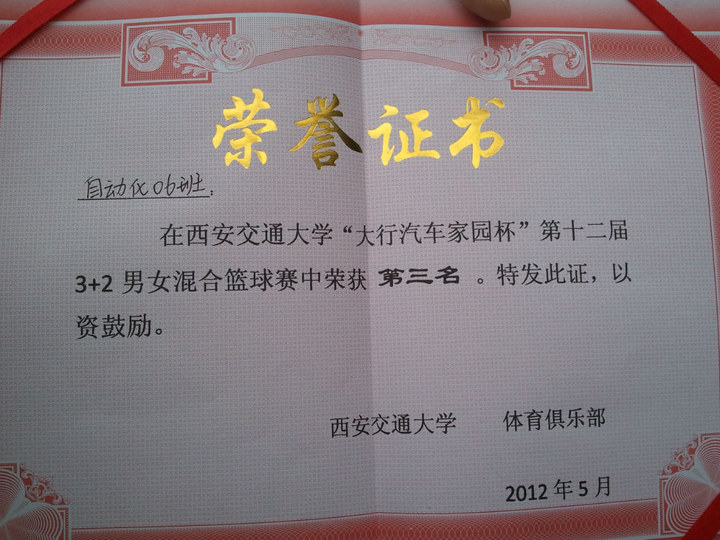 荣誉证书
自动化06班：
在西安交通大学“大行汽车家园杯”第十二届
3+2男女混合篮球赛中荣获 第三名 。特发此证，以
资鼓励。
西安交通大学 体育俱乐部
2012年5月